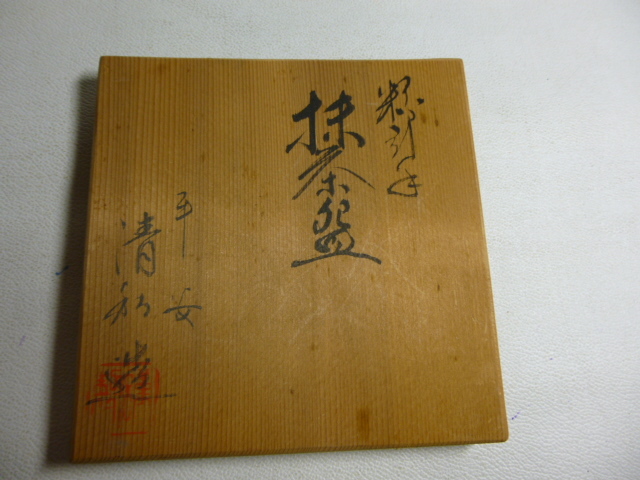 粉引手
抹茶盌
平安
清和造